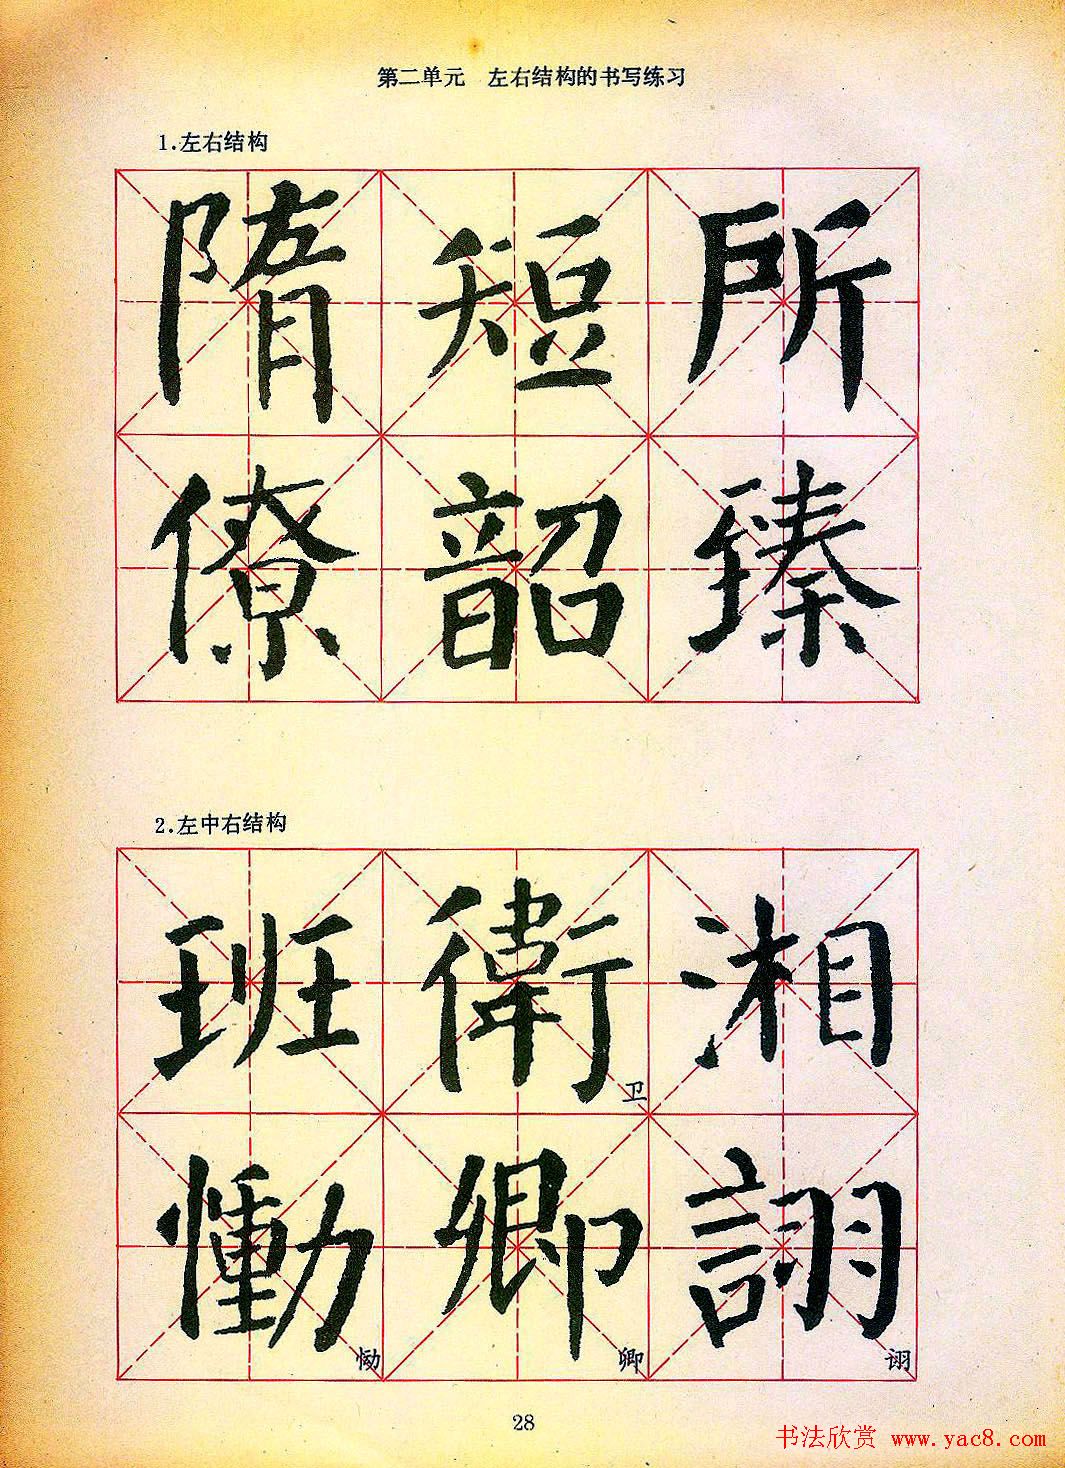 第二单元 左右结构的书写练习
1.左右结构
隋短所
僚韶臻
2.左中右结构
班衛湘
卫
慟卿詡
恸 卿 诩
28
书法欣赏 www.yac8.com